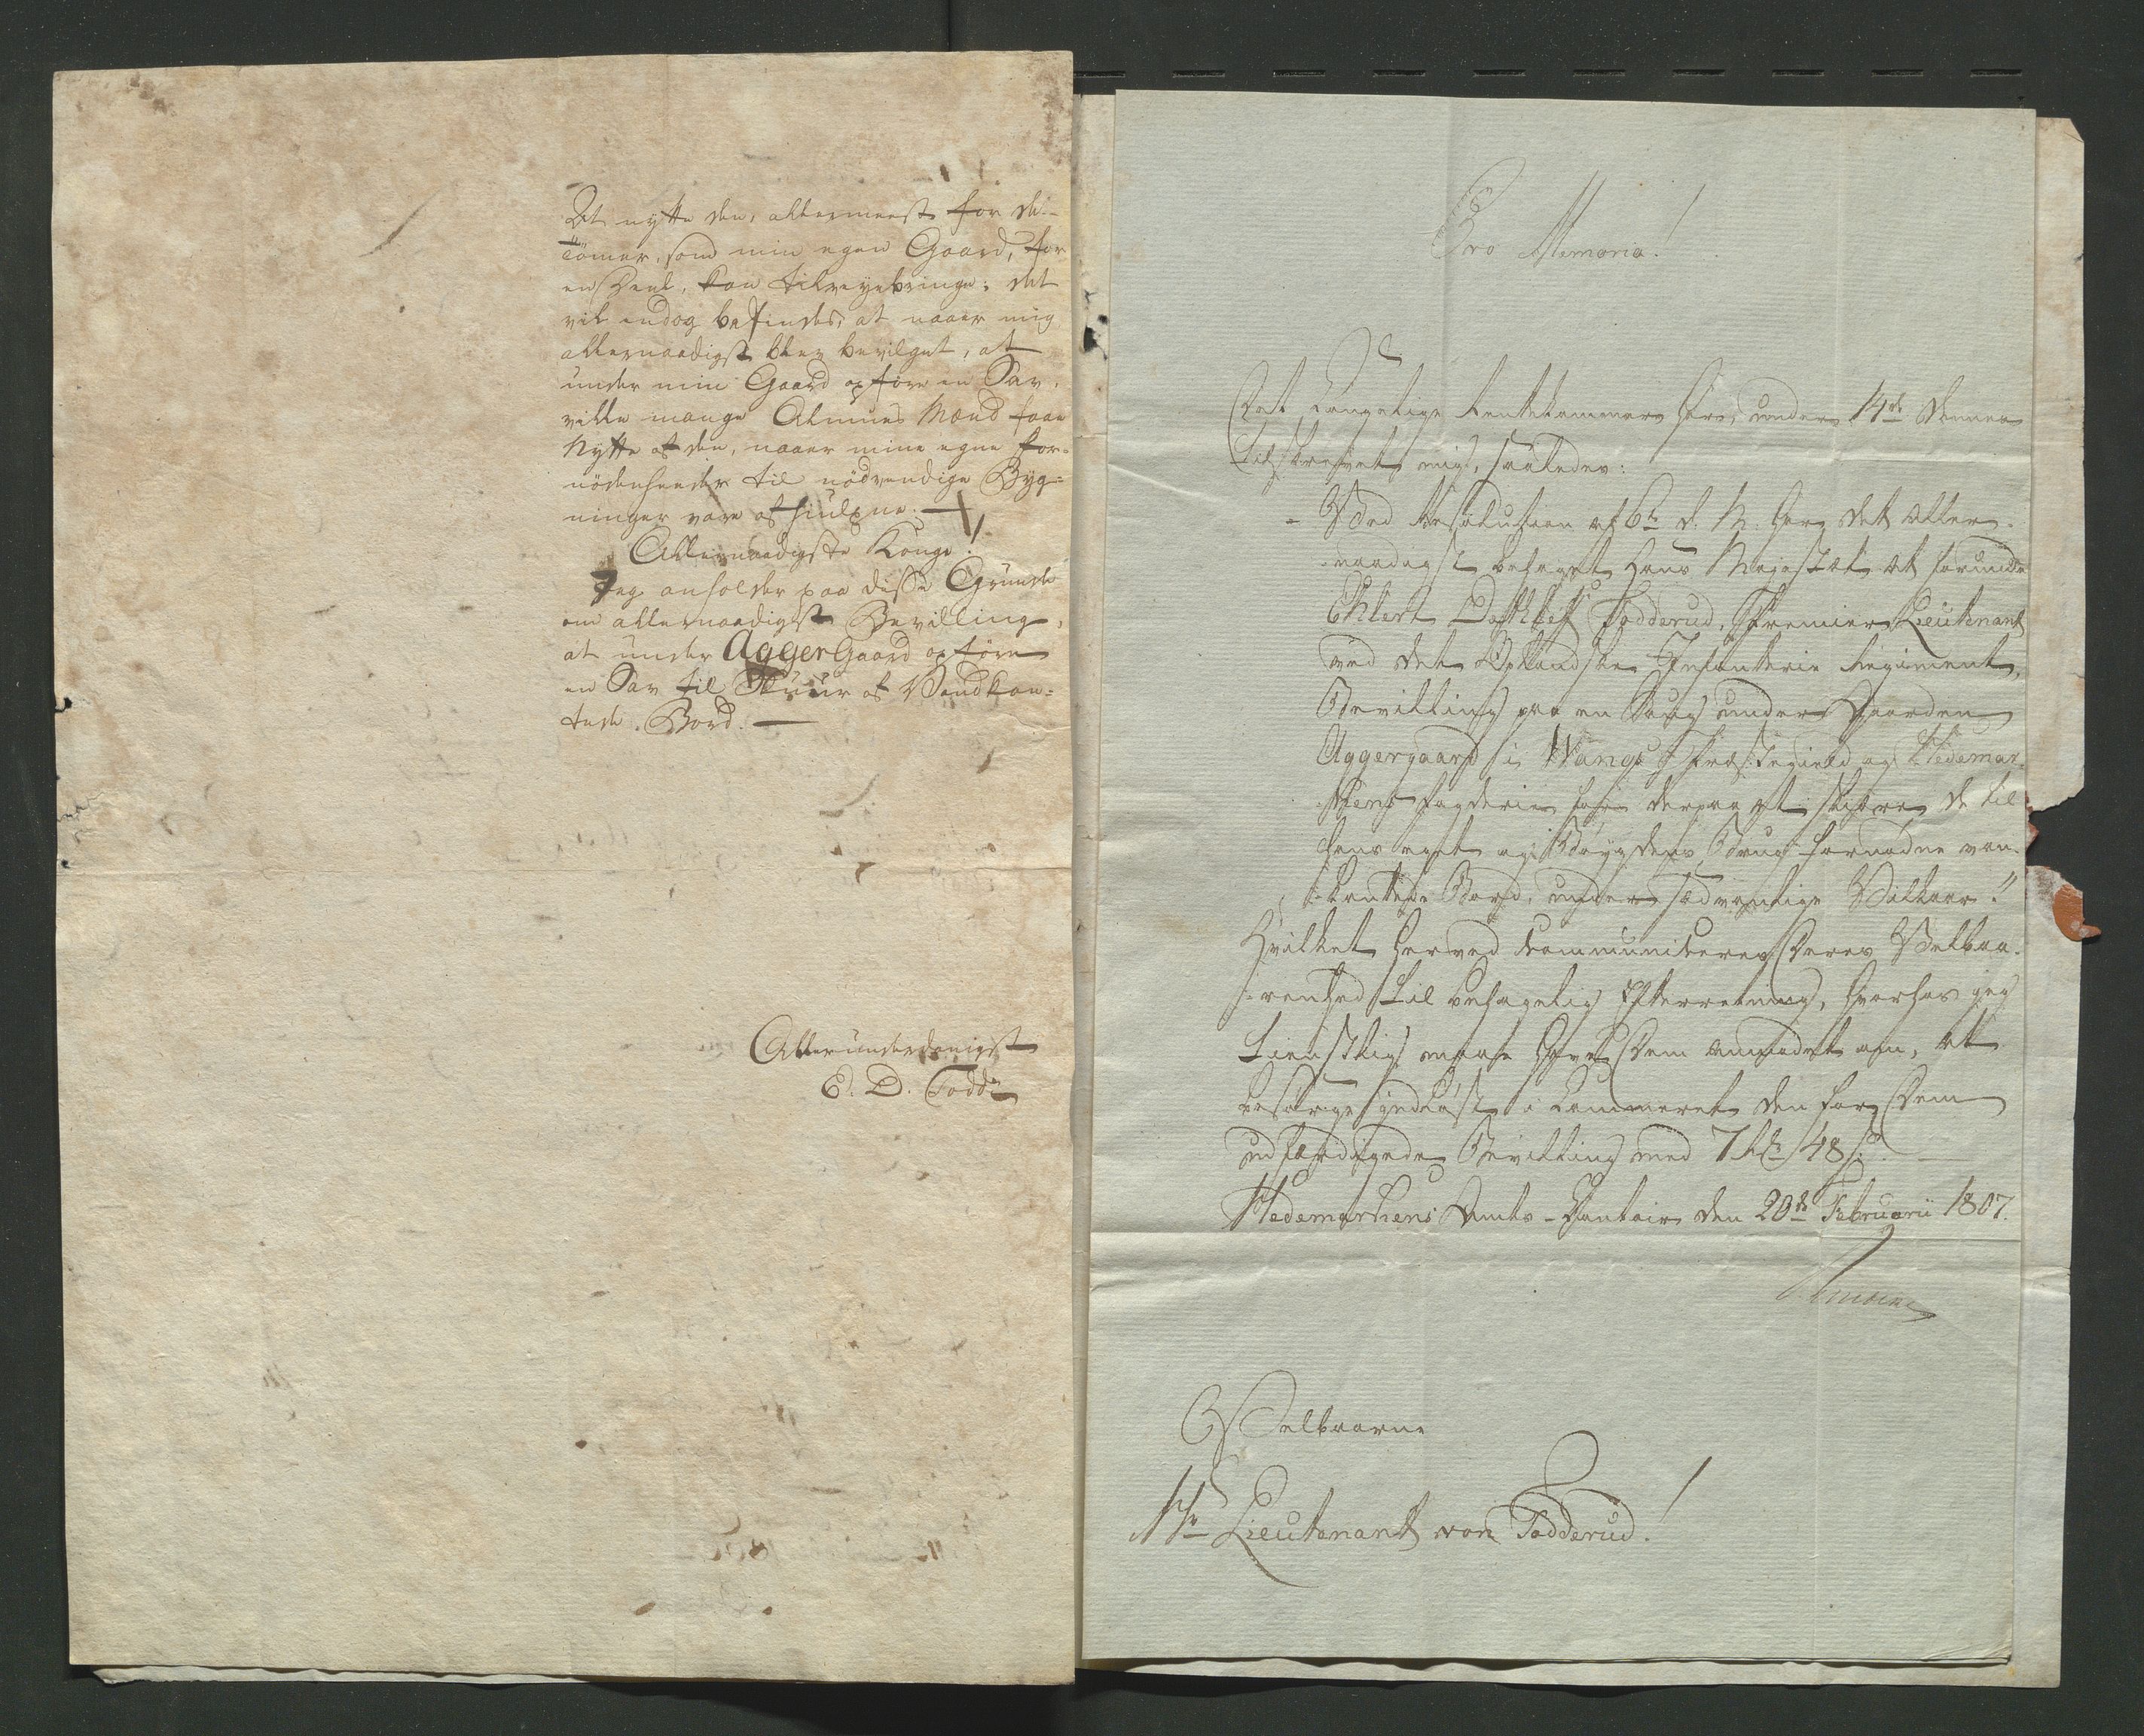 At nytte den, allermeest for de
Tömer, som min egen Gaard, for
en Deel, kan tilveyebringe; det
vil endog befindes, at naaer mig
allernaadigst blev bevilget, at
under min Gaard opføre en Sav,
ville mange Almues Mænd faae
Nytte af den, naaer mine egne for-
nödenheeder til nödvendige Byg=
ninger vare afhiulpne. —
Allernaadigste Konge!
Jeg anholder paa disse Grunde
om allernaadigst Bevilling,
at under Agger Gaard opföre
en Sav til Skuur af Vandkan=
tede Bord. —
Allerunderdanigst
E. D. Todd
Pro Memoria!
Det Kongelige Rentekammer har, under 14de denne
tilskrevet mig, saaledes:
"Ved Resolution af 6te d. M. har det aller-
naadigst behaget Hans Majestæt at forunde
Ehlert Dethlef Todderud, Premier Lieutenant
ved det Oplandske Infanterie Regiment,
Bevilling paa en Saug under Gaarden
Aggergaard i Wangs Præstegield og Hedemar-
kens Fogderie for derpaa at skjære de til
hans eget og Bøygdens Brug fornødne van-
kantede Bord, under sædvanlige Vilkaar."
Hvilket herved communiceres Deres Velbaa-
renhed til behagelig Efterretning, hvorhos jeg
tienstlig maae have Dem anmodet om, at
besørge indløst i Kammeret den for Dem
udfærdigede Bevilling med 7 Rd 48 s.
Hedemarkens Amts-Contoir den 20de Februarii 1807.
Velbaarne
Hr Lieutenant von Todderud!